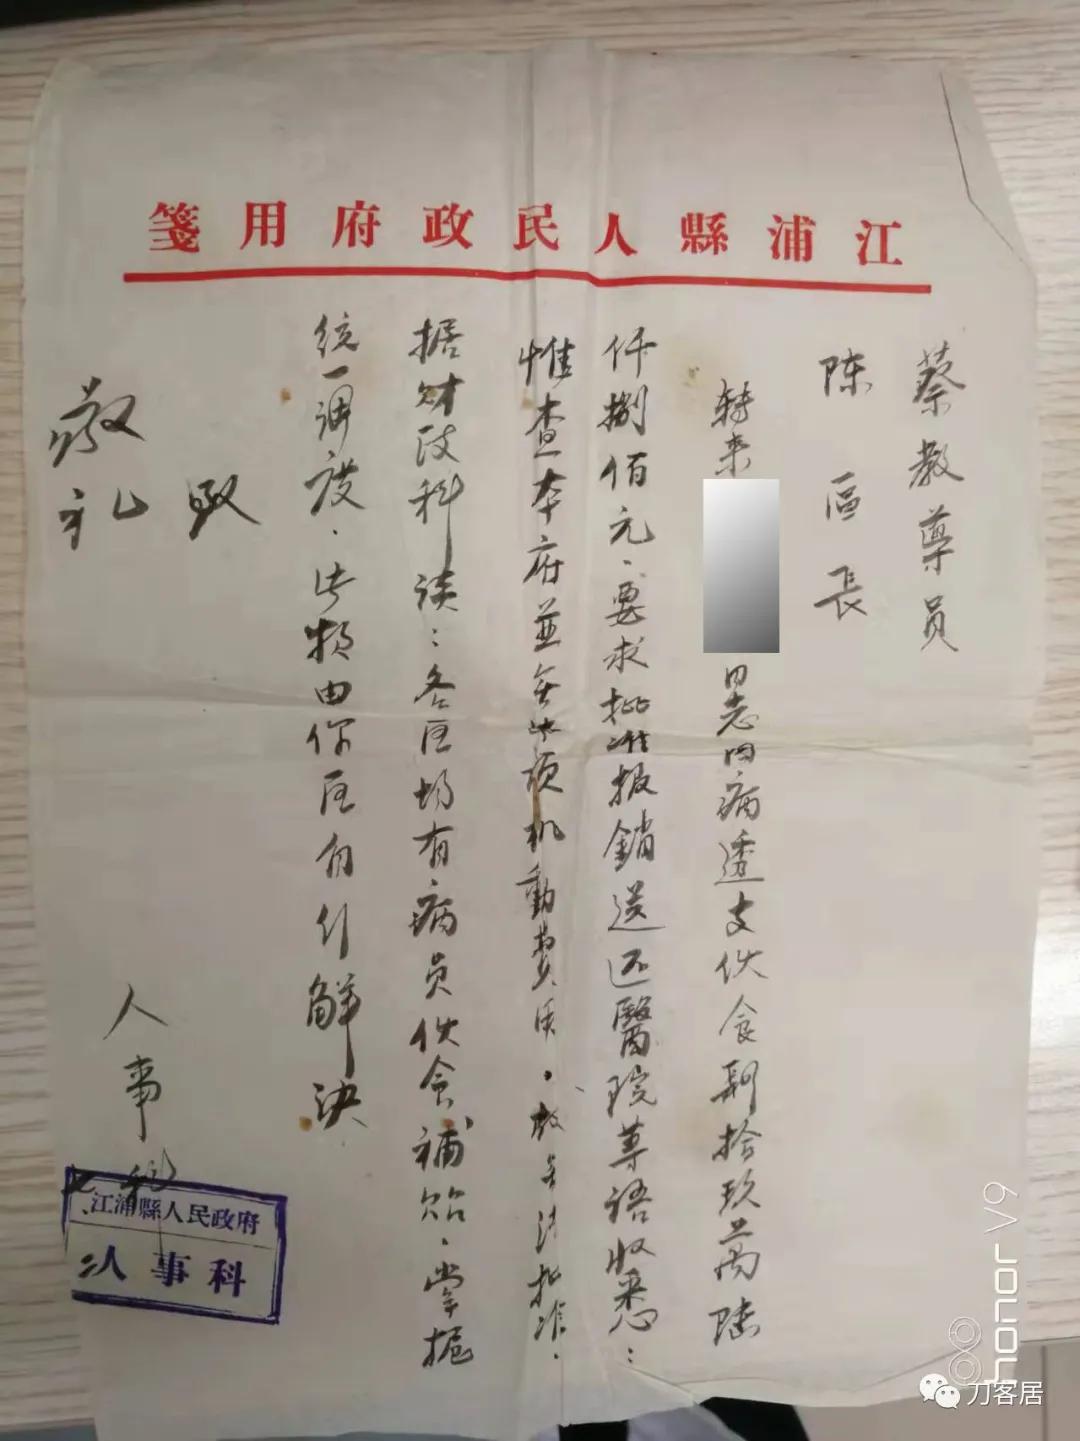 江浦縣人民政府用箋
蔡教導員
陈區長
轉来
同志因病透支伙食 拾玖萬陸
仟捌佰元、要求批准报銷送还醫院等语收悉：
惟查本府並無此项机動費用、故無法批准、
据财政科谈：各区均有病员伙食補贴、掌握
统一调度、此款由你区自行解决
致
敬礼
人事科
江浦縣人民政府
人事科
honor V9
刀客居